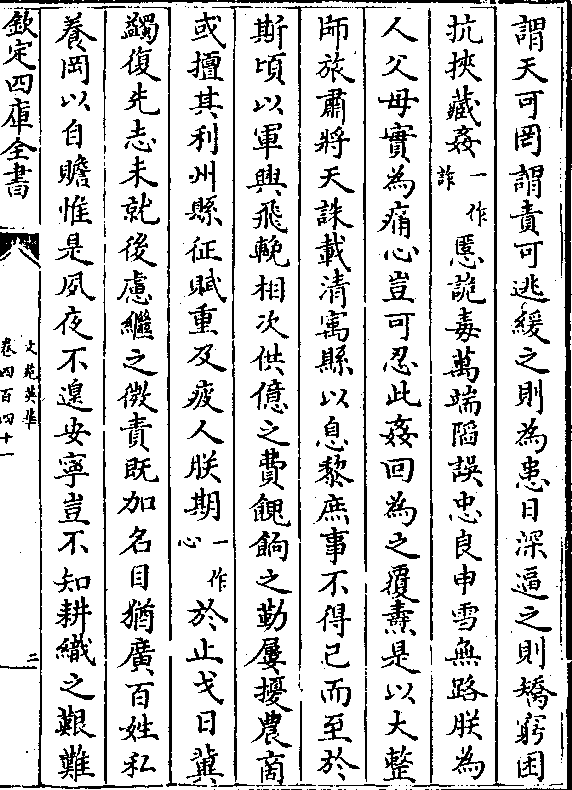 謂天可罔謂責可逃緩之則為患日深逼之則矯窮困
抗挾藏姦一作詐慝詭毒萬端陷誤忠良申雪無路朕為
人父母實為痛心豈可忍此姦回為之覆燾是以大整
師旅肅將天誅載清㝢縣以息黎庶事不得已而至於
斯頃以軍興飛輓相次供億之費餽餉之勤屢擾農商
或擅其利州縣征賦重及疲人朕期一作心於止戈日冀
蠲復先志未就後慮繼之徴責既加名目猶廣百姓私
養罔以自贍惟是夙夜不遑安寧豈不知耕織之艱難
欽定四庫全書
文苑英華
卷四百四十一
三